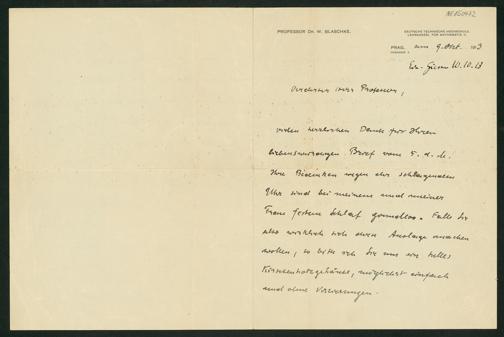 PROFESSOR Dr. W. BLASCHKE.
DEUTSCHE TECHNISCHE HOCHSCHULE.
LEHRKANZEL FÜR MATHEMATIK II.
PRAG, am 9. Okt. 1913
Verehrter Herr Professor,
vielen herzlichen Dank für Ihren
liebenswürdigen Brief vom 5. d. M.
Ihre Bedenken wegen der schlagenden
Uhr sind bei meinem und meiner
Frau festem Schlaf grundlos. Falls Sie
also wirklich sich diese Auslage machen
wollen, so bitte ich Sie um ein helles
Kirschholzgehäuse, möglichst einfach
und ohne Verzierungen.